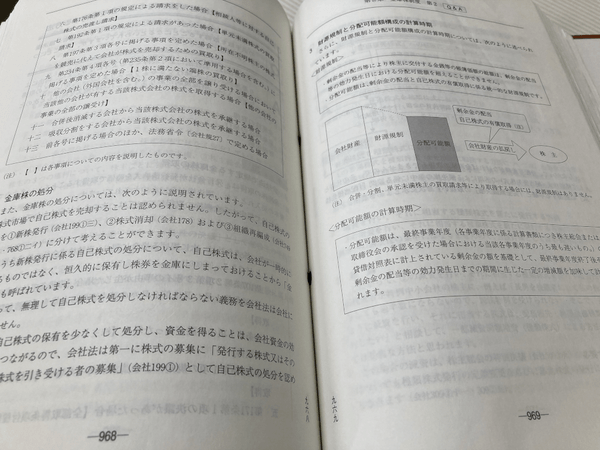 八 第176条第1項の規定による請求をした場合【相続人等に対する
株式の売渡し請求】
九 第192条第1項の規定による請求があった場合【単元未満株式の買取
請求】
十 第197条第3項各号に掲げる事項を定めた場合【所在不明株主の株式
を競売に代えて会社が株式を売却するための買取り】
第234条第4項各号（第235条第2項において準用する場合を含む。）に
掲げる事項を定めた場合【1株に満たない端株の買取り】
他の会社（外国会社を含む。）の事業の全部を譲り受ける場合において
当該他の会社が有する当該株式会社の株式を取得する場合
事業の全部の譲受け】
合併後消滅する会社から当該株式会社の株式を承継する場合
十二 吸収分割をする会社から当該株式会社の株式を承継する場合
十三 前各号に掲げる場合のほか、法務省令（会社施27）で定める場合
（注）【 】は各事項についての内容を説明したものです。
金庫株の処分
また、金庫株の処分については、次のように説明されています。
株式市場で自己株式を売却することは認められません。したがって、自己株式の
①新株発行（会社199①）、②株式消却（会社178）および③組織再編成（会社
・768①二イ）に分けて考えることができます。
うち新株発行に係る自己株式の処分について、自己株式は、会社が一時的に
るものではなく、恒久的に保有し株券を金庫にしまっておけることから「金
も呼ばれています。
って、無理して自己株式を処分しなければならない義務を会社法は会社に
せん。
自己株式の保有を少なくして処分し、資金を得ることは、会社資金の効
つながるので、会社法は第一に株式の募集に「発行する株式又はその
株式を引き受ける者の募集」（会社199①）として自己株式の処分を認め
九六八
―968―
Q&A
財源規制と分配可能額構成の計算時期
さらに、財源規制と分配可能額構成の計算時期については、次のように述べられ
ています。
剰余金の配当等により株主に交付する金銭等の帳簿価額の総額は、剰余金の配当
等の効力発生日における分配可能額を超えることができません。
会社財産
財源規制
分配可能額
剰余金の配当、
自己株式の有償取得（注）
会社財産の払戻し
株主
（注）合併・分割、単元未満株主の買取請求等により取得する場合には、財源規制はありません。
＜分配可能額の計算時期＞
・分配可能額は、最終事業年度（各事業年度に係る計算書類につき株主総会または
取締役会の承認を受けた場合における当該各事業年度のうち最も遅いもの）の
貸借対照表に計上されている剰余金の額を基礎として、最終事業年度終了後
剰余金の配当等の効力発生日までの期間に生じた一定の増減額を加味して計
れます。
九六九
―969―